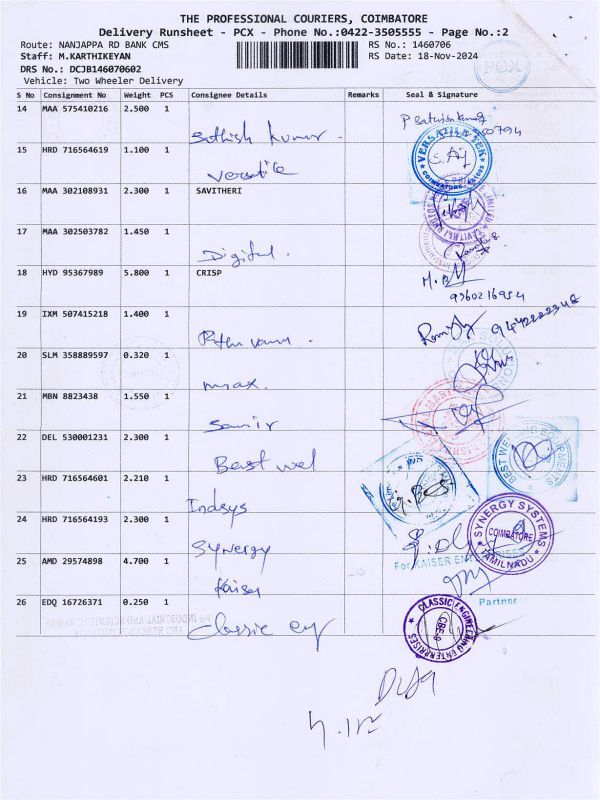 THE PROFESSIONAL COURIERS, COIMBATORE
Delivery Runsheet - PCX - Phone No.:0422-3505555 - Page No.:2
Route: NANJAPPA RD BANK CMS RS No.: 1460706
Staff: M.KARTHIKEYAN RS Date: 18-Nov-2024
DRS No.: DCJB146070602 PCX
Vehicle: Two Wheeler Delivery
S No Consignment No Weight PCS Consignee Details Remarks Seal & Signature
14 MAA 575410216 2.500 1
Sathish Kumar
15 HRD 716564619 1.100 1
Versatile
VERSATILE COIMBATORE
16 MAA 302108931 2.300 1 SAVITHERI
17 MAA 302503782 1.450 1
Digital
18 HYD 95367989 5.800 1 CRISP
9360216954
19 IXM 507415218 1.400 1
9442222348
20 SLM 358889597 0.320 1
max
21 MBN 8823438 1.550 1
Samir
22 DEL 530001231 2.300 1
Best wel
BEST WEIGHING EQUIPMENTS
23 HRD 716564601 2.210 1
Indsys
24 HRD 716564193 2.300 1
Synergy
SYNERGY SYSTEMS COIMBATORE TAMILNADU
25 AMD 29574898 4.700 1
Kaiser
For KAISER ENTERPRISES
Partner
26 EDQ 16726371 0.250 1
Classic
CLASSIC ENGINEERING ENTERPRISES CBE-9